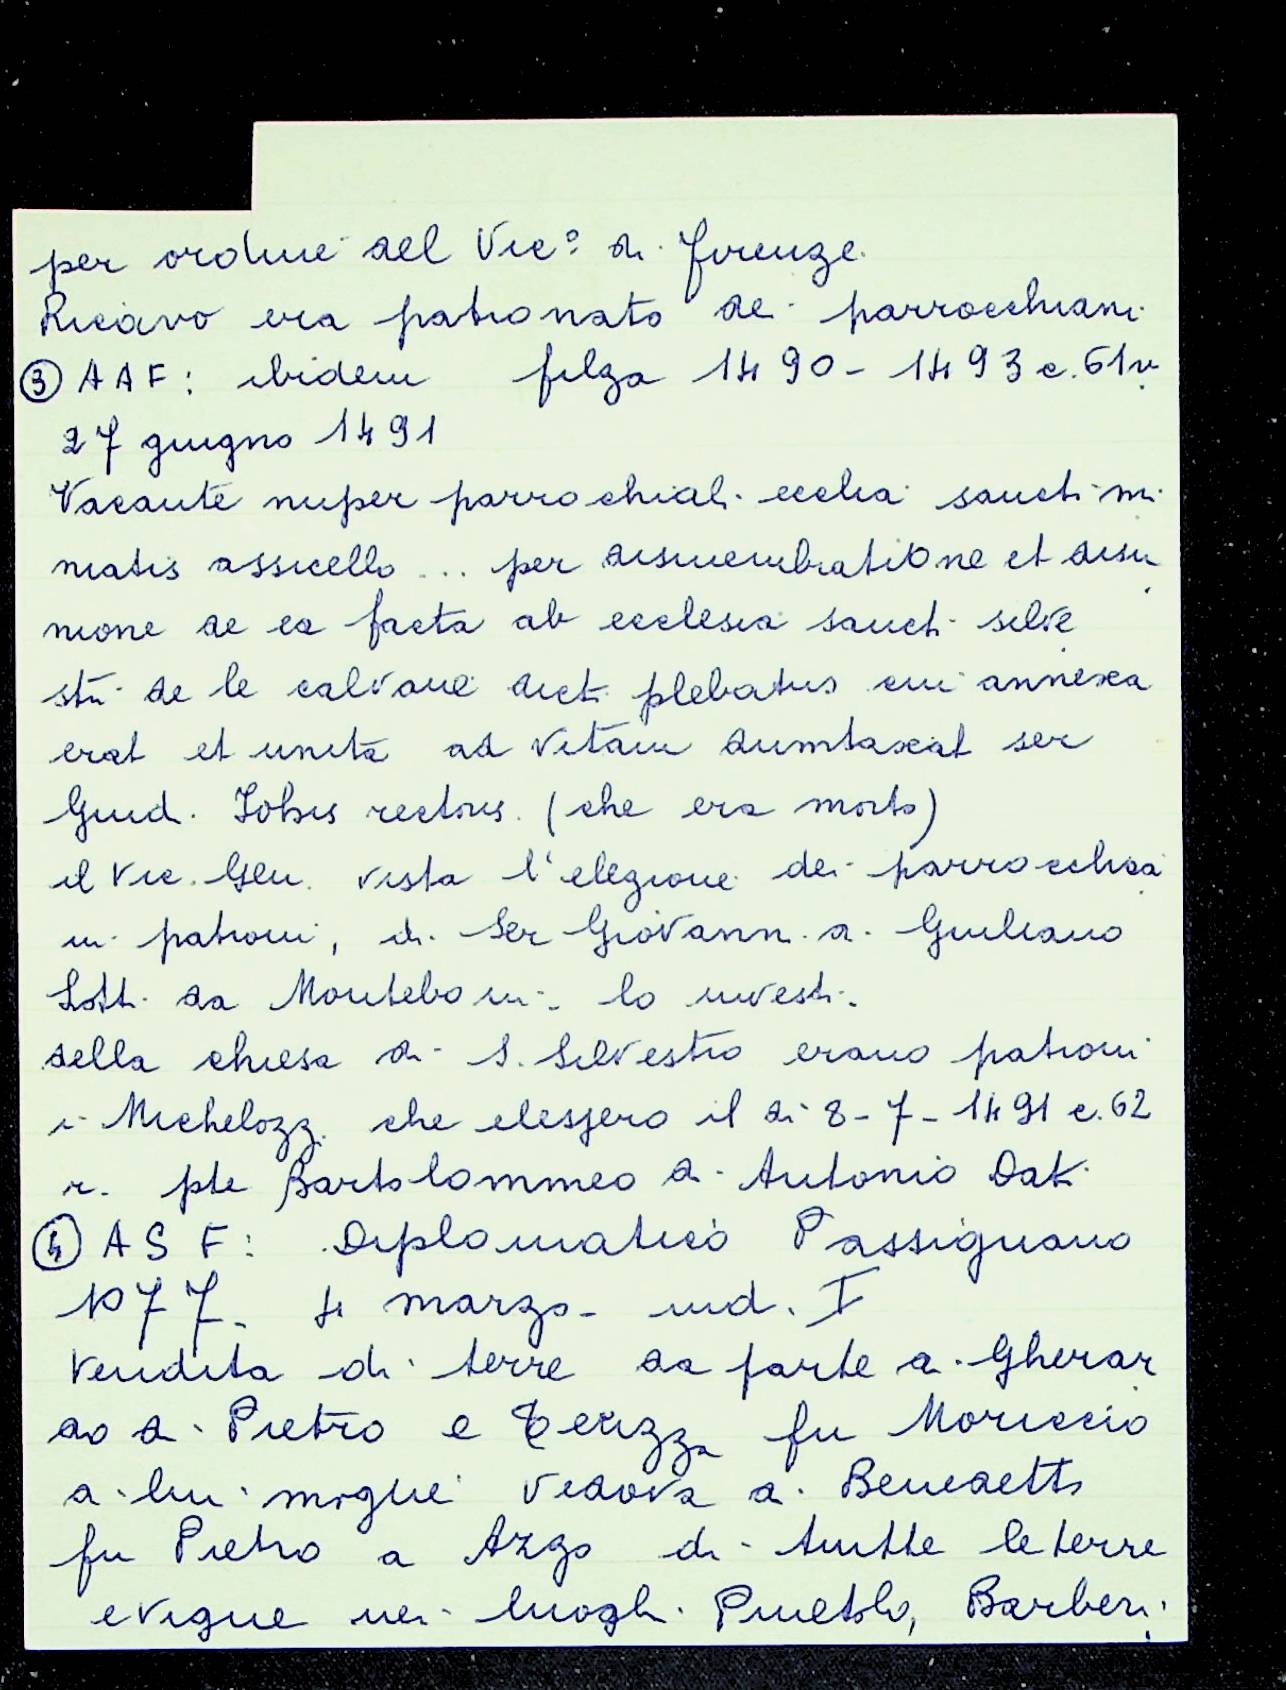 per ordine del Vic° di Firenze.
Ricavo era patronato dei parrocchiani
③ AAF: ibidem filza 1490-1493 c. 61v
27 giugno 1491
Vacante nuper parrochiali ecclia sancti mi
niatis assicello ... per dismembratione et disu
nione de ea facta ab ecclesia sancti silve
stri de le calvane dicti plebatus cui annexa
erat et unita ad vitam dumtaxat ser
Guid. Johis rectoris. (che era morto)
il Vic. Gen. vista l'elezione dei parrocchia
ni patroni, di Ser Giovanni di Giuliano
Lotti da Monteboni lo investì.
della chiesa di S. Silvestro erano patroni
i Michelozzi che elessero il dì 8-7-1491 c. 62
r. pte Bartolommeo di Antonio Dati
④ ASF: Diplomatico Passignano
1077. 4 marzo - ind. I
Vendita di terre da parte di Gherar
do di Pietro e Teuzza fu Moriccio
di lui moglie vedova di Benedetto
fu Pietro a Azzo di tutte le terre
e vigne nei luoghi Pinetolo, Barberi